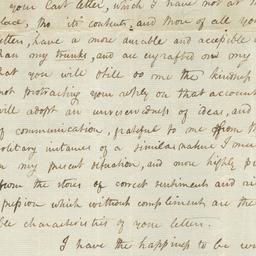 your last letter, which I have not at th
place, tho' its contents, and those of all you
letters, have a more durable and accessible
than my trunks, and are engrafted on my
that you will still do me the kindness
not protracting your reply on that account
will adopt an unreservedness of ideas, and
of communication, grateful to me from th
solitary instances of a similar nature I mee
in my present situation, and more highly p
from the stores of correct sentiments and ri
pression which without compliment are the
ble characteristics of your letters.
I have the happiness to be wi